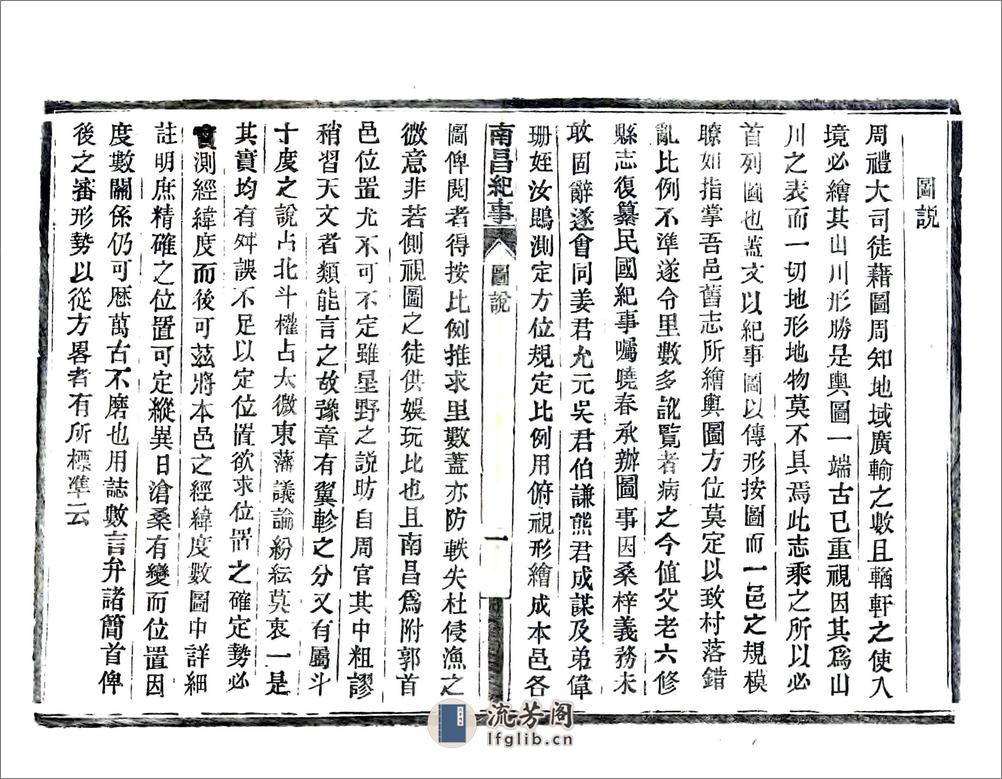 圖説
周禮大司徒藉圖周知地域廣輸之數且輶軒之使入
境必繪其山川形勝是輿圖一端古已重視因其爲山
川之表而一切地形地物莫不具焉此志乘之所以必
首列圖也蓋文以紀事圖以傳形按圖而一邑之規模
瞭如指掌吾邑舊志所繪輿圖方位莫定以致村落錯
亂比例不準遂令里數多訛覽者病之今值父老六修
縣志復纂民國紀事囑曉春承辦圖事因桑梓義務未
敢固辭遂會同姜君允元吳君伯謙熊君成謀及弟偉
珊姪汝鵾測定方位規定比例用俯視形繪成本邑各
南昌紀事
圖說
一
圖俾閱者得按比例推求里數蓋亦防軼失杜侵漁之
微意非若側視圖之徒供娛玩比也且南昌爲附郭首
邑位置尤不可不定雖星野之説昉自周官其中粗謬
稍習天文者類能言之故豫章有翼軫之分又有屬斗
十度之說占北斗權占太微東藩議論紛紜莫衷一是
其實均有舛誤不足以定位置欲求位置之確定勢必
實測經緯度而後可茲將本邑之經緯度數圖中詳細
註明庶精確之位置可定縱異日滄桑有變而位置因
度數關係仍可歷萬古不磨也用誌數言弁諸簡首俾
後之審形勢以從方畧者有所標準云
流芳閣
lfglib.cn